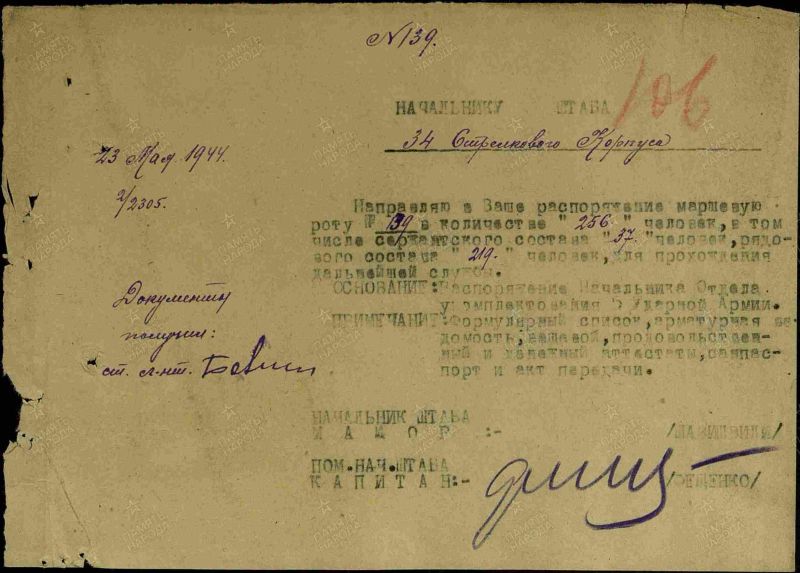 N139.
106
НАЧАЛЬНИКУ ШТАБА
34 Стрелкового Корпуса
23 Мая 1944.
2/2305.
Направляю в Ваше распоряжение маршевую
роту № 139 в количестве "256" человек, в том
числе сержантского состава "37" человек, рядо-
вого состава "219" человек, для прохождения
дальнейшей службы.
ОСНОВАНИЕ: Распоряжение Начальника Отдела
укомплектования 5 Ударной Армии.
ПРИМЕЧАНИЕ: Формулярный список, арматурная ве-
домость, вещевой, продовольствен-
ный и денежный аттестаты, санпас-
порт и акт передачи.
Документы
получил:
ст. л-нт.
НАЧАЛЬНИК ШТАБА
МАЙОР :-
ПОМ.НАЧ.ШТАБА
КАПИТАН:- /ФЕЩЕНКО/
ПАМЯТЬ НАРОДА